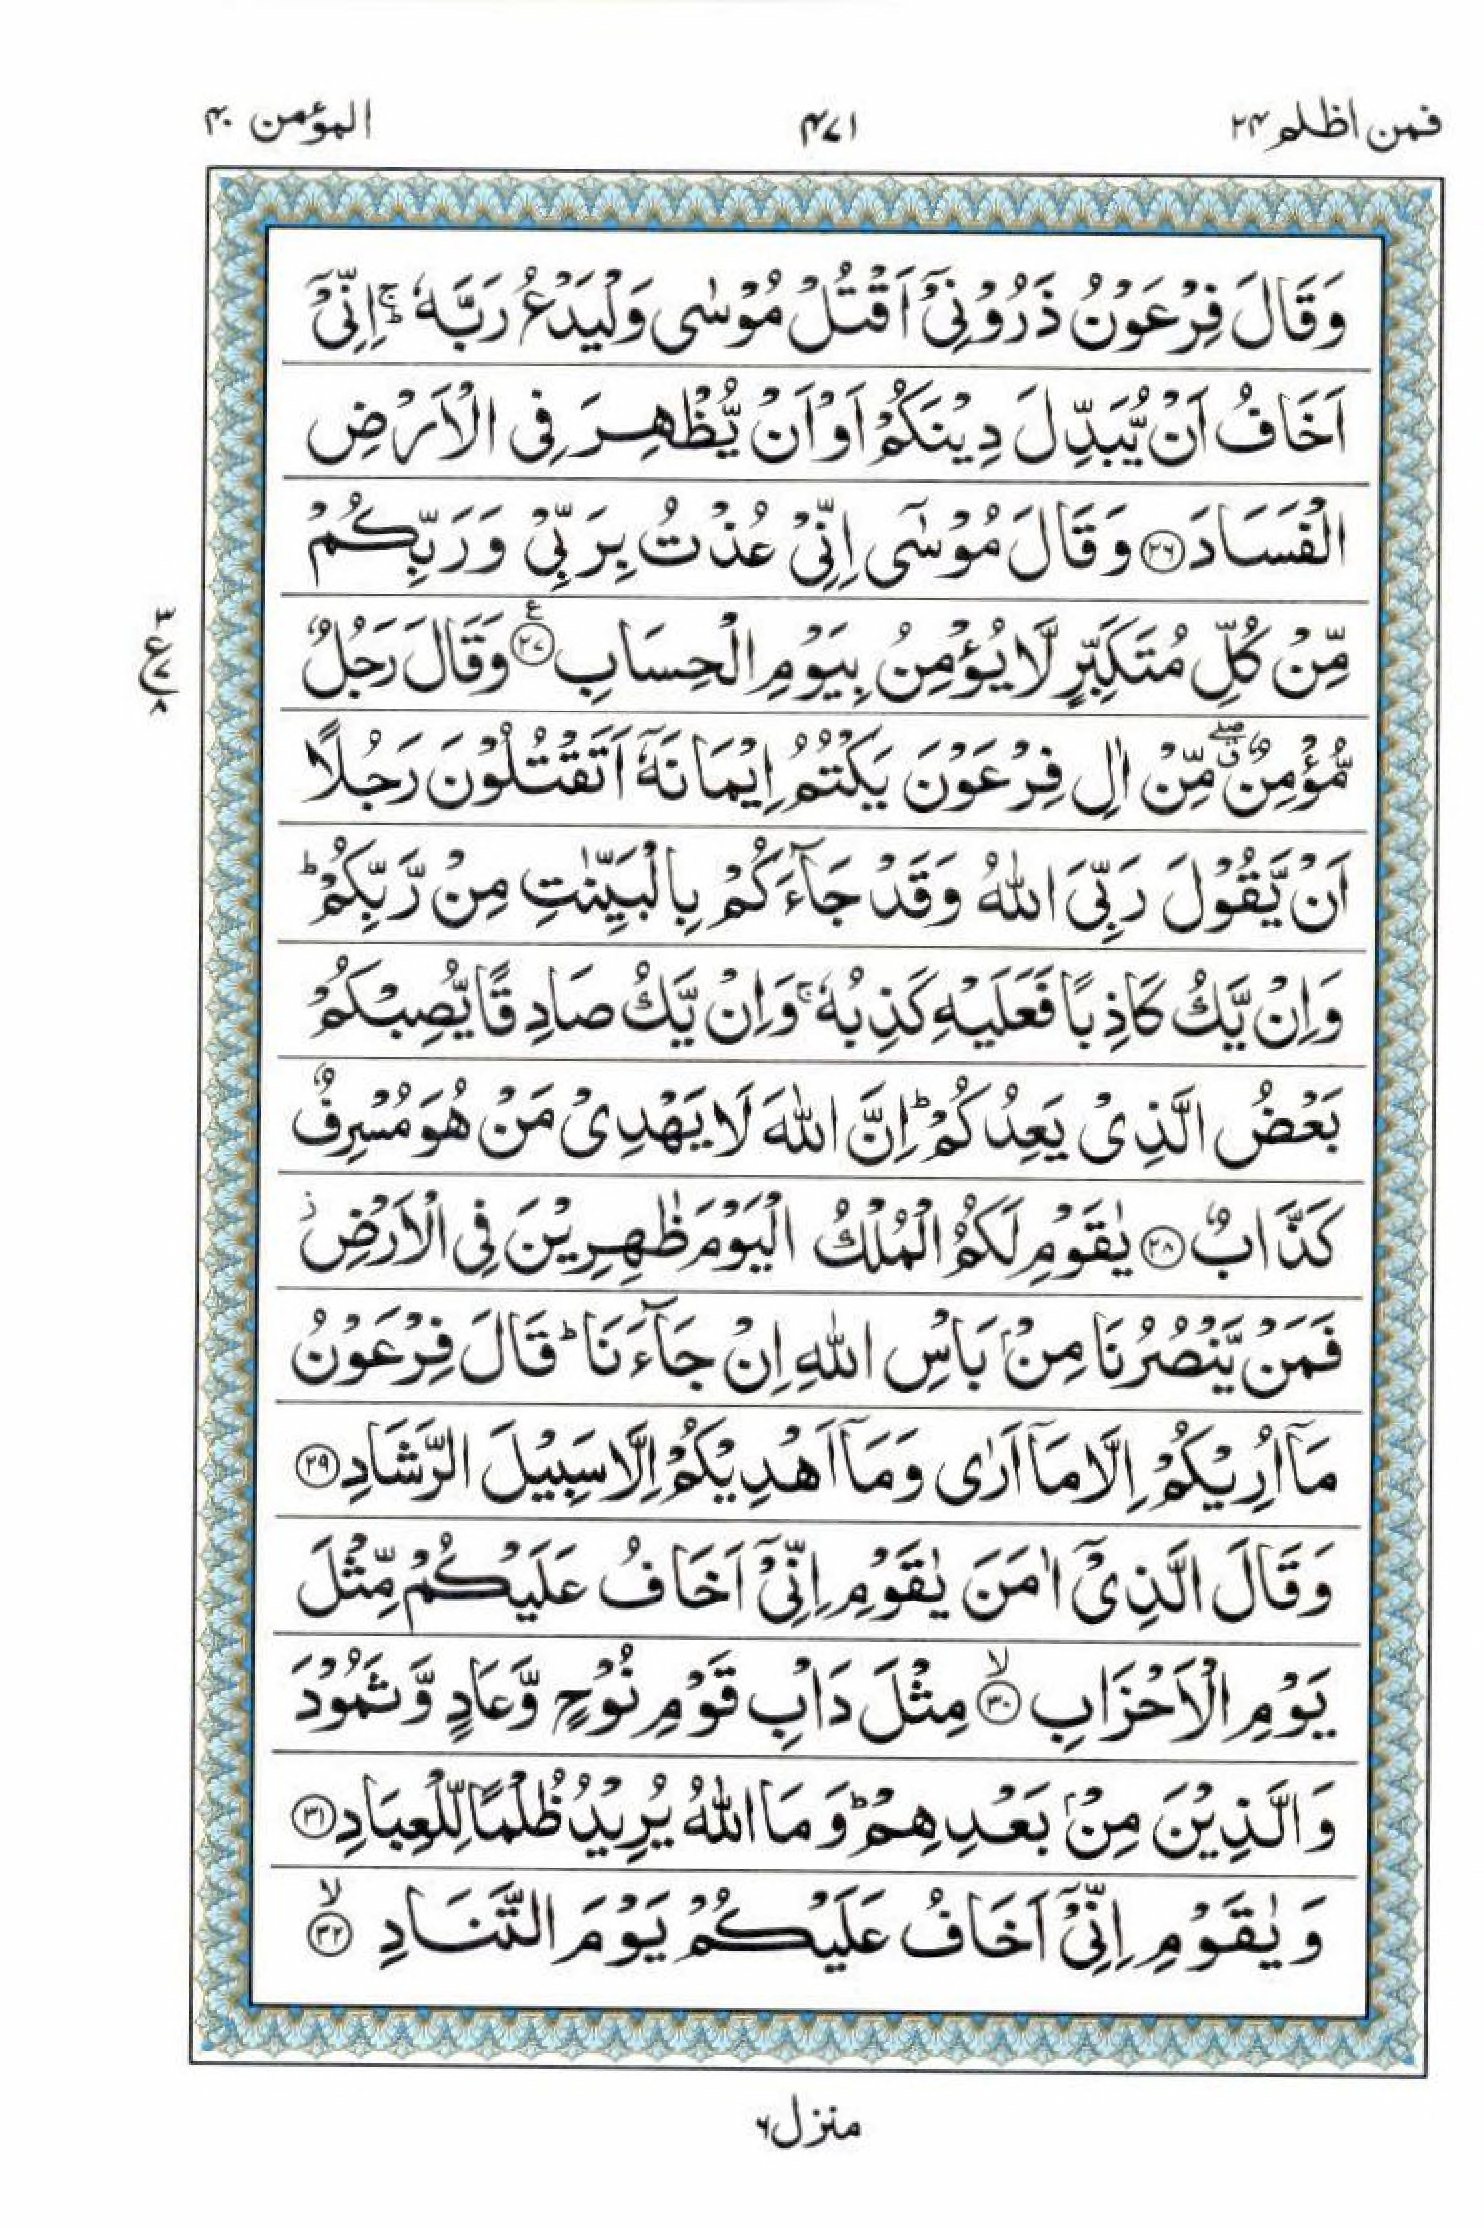 فمن اظلم ۲۴
۴۷۱
المؤمن ۴۰
وَقَالَ فِرْعَوْنُ ذَرُوْنِیْۤ اَقْتُلْ مُوْسٰی وَلْیَدْعُ رَبَّهٗ ۚؕ اِنِّیْۤ
اَخَافُ اَنْ یُّبَدِّلَ دِیْنَكُمْ اَوْ اَنْ یُّظْهِرَ فِی الْاَرْضِ
الْفَسَادَ ﴿۲۶﴾ وَقَالَ مُوْسٰۤی اِنِّیْ عُذْتُ بِرَبِّیْ وَرَبِّكُمْ
مِّنْ كُلِّ مُتَكَبِّرٍ لَّا یُؤْمِنُ بِیَوْمِ الْحِسَابِ ﴿۲۷﴾ ع وَقَالَ رَجُلٌ
مُّؤْمِنٌ ۖۗ مِّنْ اٰلِ فِرْعَوْنَ یَكْتُمُ اِیْمَانَهٗۤ اَتَقْتُلُوْنَ رَجُلًا
اَنْ یَّقُوْلَ رَبِّیَ اللّٰهُ وَقَدْ جَآءَكُمْ بِالْبَیِّنٰتِ مِنْ رَّبِّكُمْ ؕ
وَاِنْ یَّكُ كَاذِبًا فَعَلَیْهِ كَذِبُهٗ ۚ وَاِنْ یَّكُ صَادِقًا یُّصِبْكُمْ
بَعْضُ الَّذِیْ یَعِدُكُمْ ؕ اِنَّ اللّٰهَ لَا یَهْدِیْ مَنْ هُوَ مُسْرِفٌ
كَذَّابٌ ﴿۲۸﴾ یٰقَوْمِ لَكُمُ الْمُلْكُ الْیَوْمَ ظٰهِرِیْنَ فِی الْاَرْضِ ؗ
فَمَنْ یَّنْصُرُنَا مِنْۢ بَاْسِ اللّٰهِ اِنْ جَآءَنَا ؕ قَالَ فِرْعَوْنُ
مَاۤ اُرِیْكُمْ اِلَّا مَاۤ اَرٰی وَمَاۤ اَهْدِیْكُمْ اِلَّا سَبِیْلَ الرَّشَادِ ﴿۲۹﴾
وَقَالَ الَّذِیْۤ اٰمَنَ یٰقَوْمِ اِنِّیْۤ اَخَافُ عَلَیْكُمْ مِّثْلَ
یَوْمِ الْاَحْزَابِ ﴿۳۰﴾ ۙ مِثْلَ دَاْبِ قَوْمِ نُوْحٍ وَّعَادٍ وَّثَمُوْدَ
وَالَّذِیْنَ مِنْۢ بَعْدِهِمْ ؕ وَمَا اللّٰهُ یُرِیْدُ ظُلْمًا لِّلْعِبَادِ ﴿۳۱﴾
وَیٰقَوْمِ اِنِّیْۤ اَخَافُ عَلَیْكُمْ یَوْمَ التَّنَادِ ﴿۳۲﴾ ۙ
۳
ع ۷
۸
منزل ۶